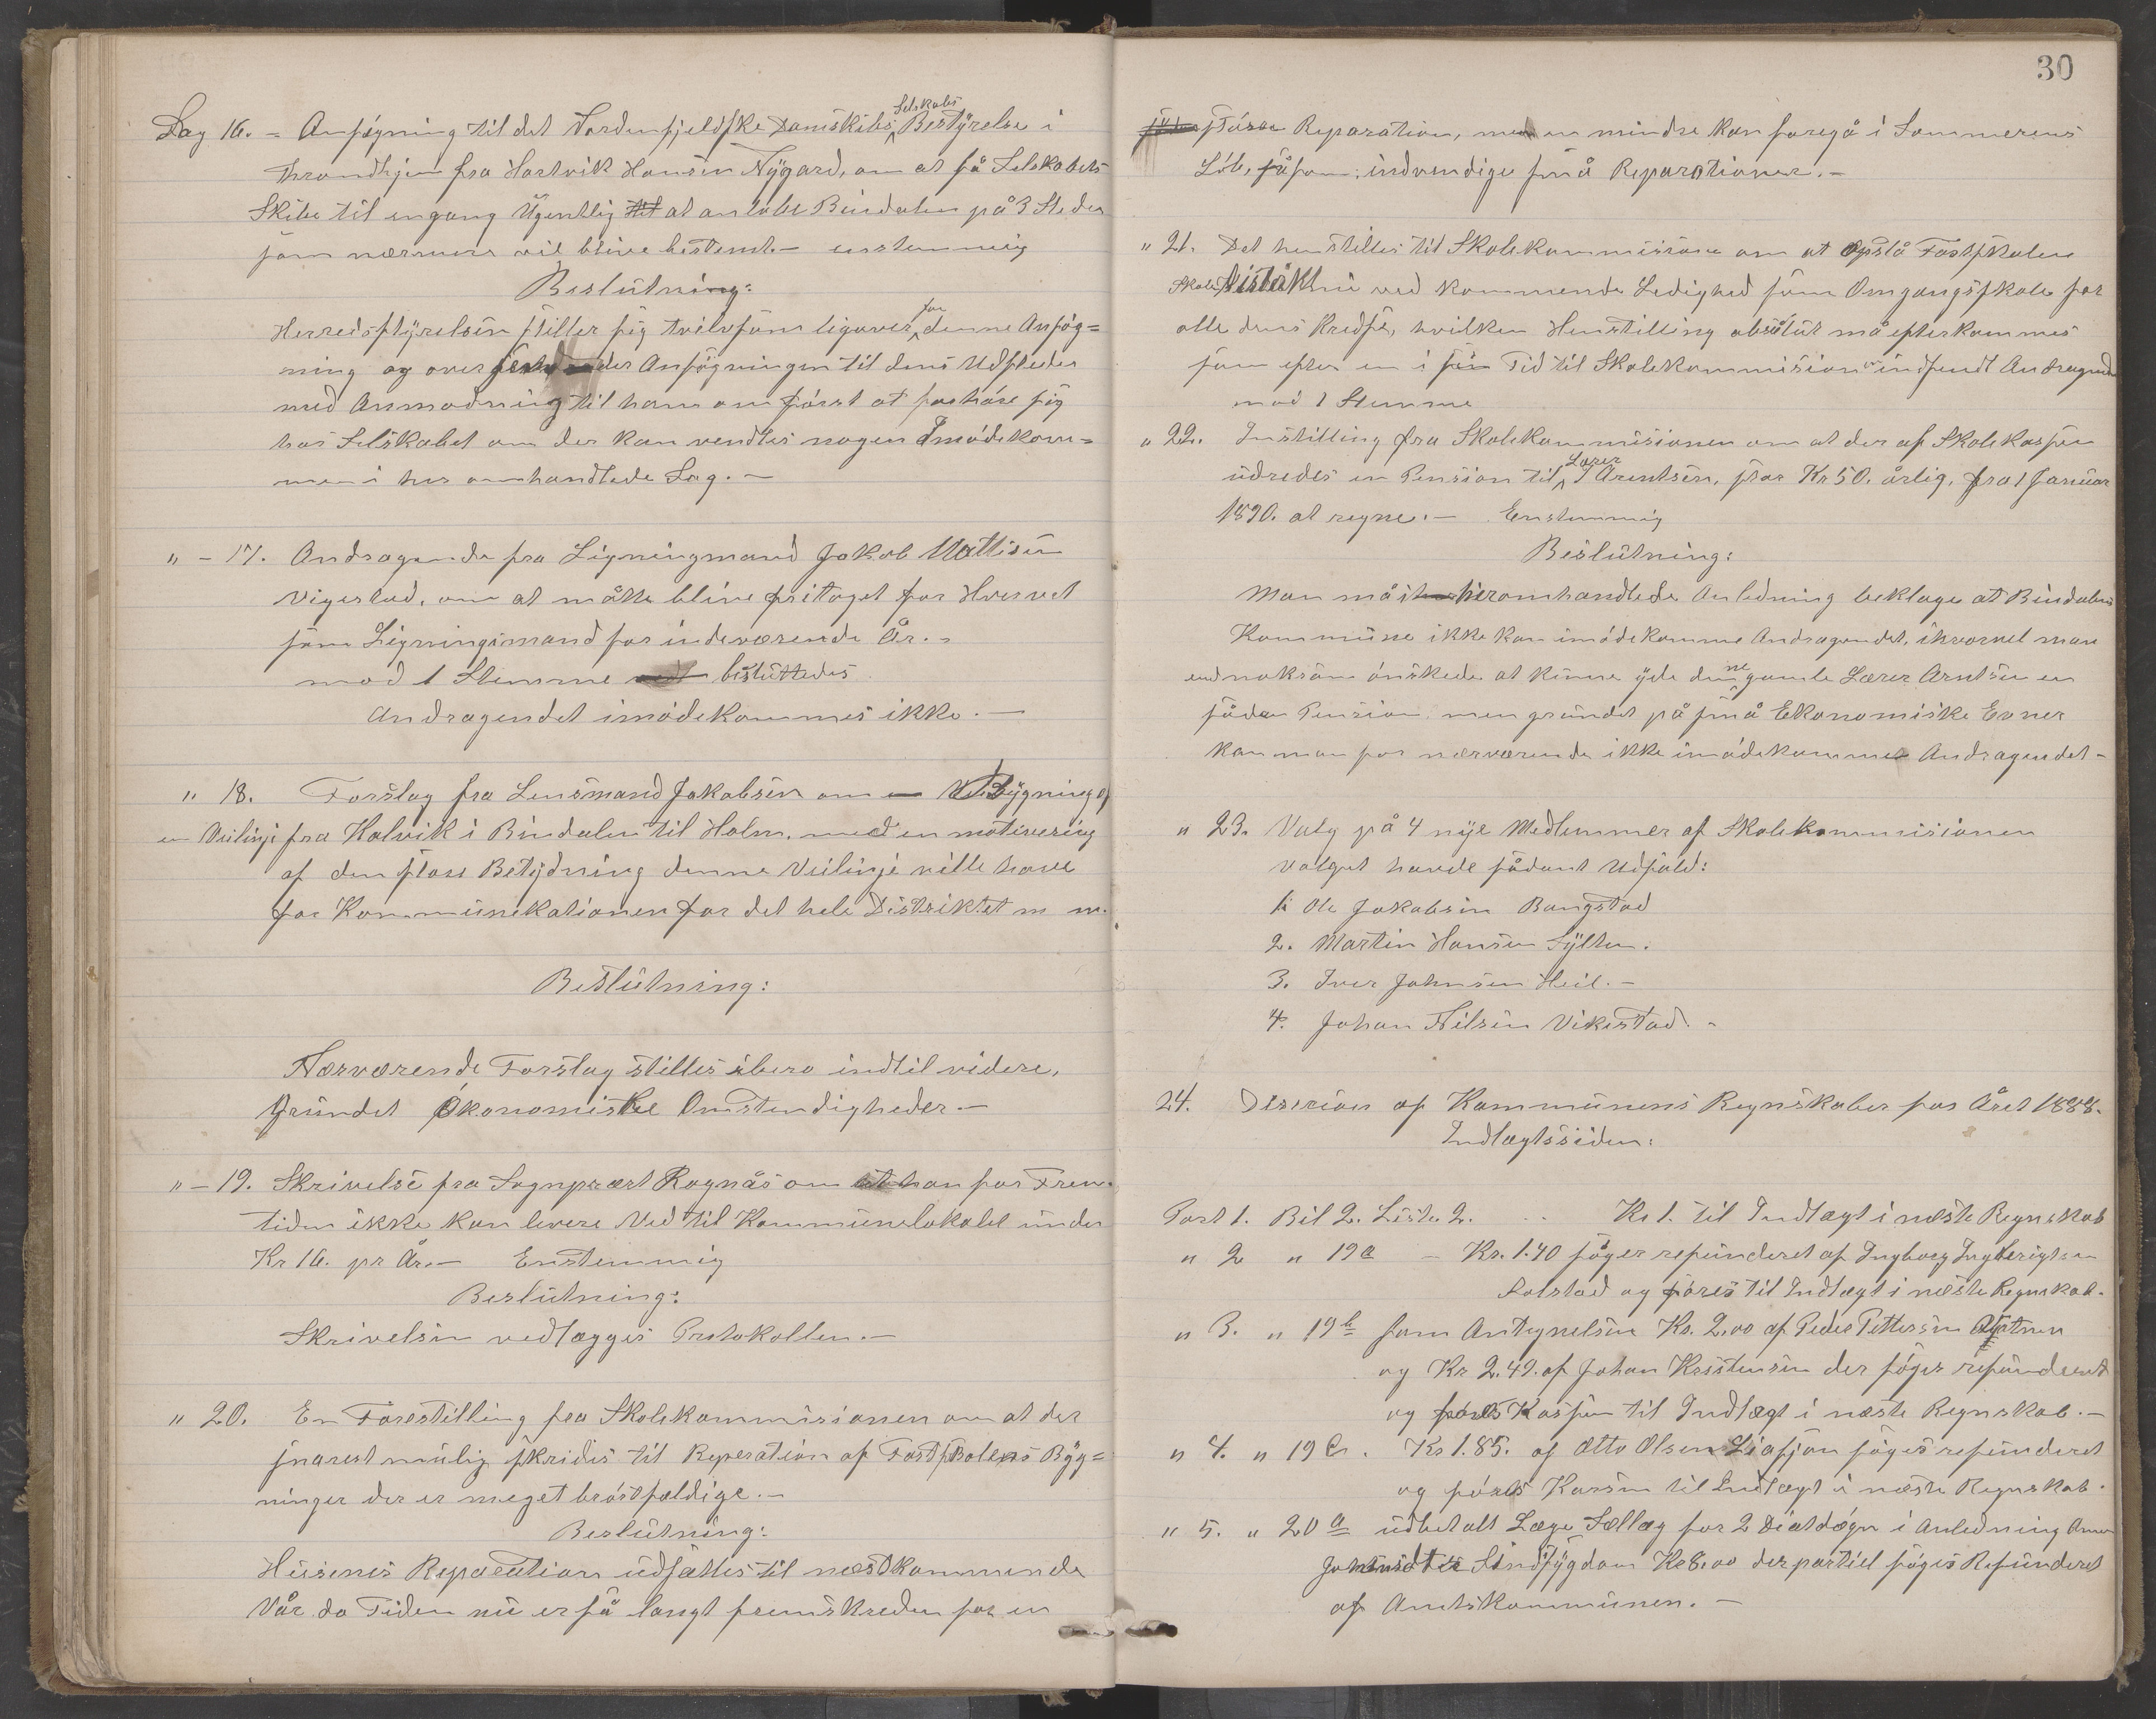 Sag 16. - Ansøgning til det Nordenfjeldske Damskibs Selskabs Bestyrelse i
Throndhjem fra Hartvik Hansen Nygard, om at få Selskabets
Skibe til engang Ugentlig at anløbe Bindalen på 3 Steder
som nærmere vil blive bestemt. - enstemmig
Beslutning:
Herredsstyrelsen stiller sig tvilsom ligover for denne Ansøg=
ning og oversender Ansøgningen til dens Udsteder
med Anmodning til ham om først at forhøre sig
hos Selskabet om der kan ventes nogen Imødekom=
men i her omhandlede Sag. -
" - 17. Andragende fra Ligningmand Jakob Mattisen
Vigestad, om at måtte blive fritaget for Hvervet
som Ligningsmand for indeværende År. -
mod 1 Stemme besluttedes
Andragendet imødekommes ikke. -
" 18. Forslag fra Lensmand Jakobsen om Udbygning af
en Veilinje fra Kalvik i Bindalen til Holm. med en motivering
af den store Betydning denne Veilinje ville have
for Kommunikationen for det hele Distriktet m m.
Beslutning:
Nærværende Forslag stilles ibero indtil videre,
Grundet Økonomiske Omstendigheder -
" - 19. Skrivelse fra Sognprest Rognås om at han for Frem-
tiden ikke kan levere Ved til Kommunelokalet under
Kr 16. pr År. - Enstemmig
Beslutning:
Skrivelsen vedlægges Protokollen. -
" 20. En Forestilling fra Skolekommisionen om at der
snarest mulig skrides til Reperation af Fastskolens Byg=
ninger der er meget brøstfældige. -
Beslutning:
Husenes Reparation udsættes til næstkommende
Vår da Tiden nu er så langt fremskreden for en
30
større Reparation, men en mindre kan foregå i Sommerens
Løb, såsom: indvendige små Reparationer. -
" 21. Det henstilles til Skolekommisionen om at opslå Fastskolen
nu ved kommende Ledighed som Omgangsskole for
alle dens Kredse, hvilken Henstilling absolut må efterkommes
som efter en i sin Tid til Skolekommisionen indsendt Andragende
mod 1 Stemme
" 22. Instilling fra Skolekommisionen om at der af Skolekassen
udredes en Pension til Lærer I Arentsen, stor Kr 50. årlig, fra 1 Januar
1890. at regne. - Enstemmig
Beslutning:
Man må i heromhandlede Anledning beklage at Bindalens
Kommune ikke kan imødekomme Andragendet, ihvorvel man
end noksom ønskede at kunne yde denne gamle Lærer Arntsen en
sådan Pension, men grundet på små Ekonomiske Evner
kan man for nærværende ikke imødekomme Andragendet -
" 23. Valg på 4 nye Medlemmer af Skolekommisionen
Valget havde sådant Udfald:
1. Ole Jakobsen Bangstad
2. Martin Hansen Sylten.
3. Iver Johnsen Heil. -
4. Johan Nilsen Vikestad. -
24. Desision af Kommunens Regnskaber for Året 1888.
Indtægtssiden:
Post 1. Bil 2. Liste 2. Kr 1. til Indtægt i næste Regnskab
" 2 " 19 a - Kr. 1.40 søges refunderet af Ingborg Ingberigtsen
Solstad og føres til Indtægt i næste Regnskab.
" 3. " 19 b som Antegnelsen Kr. 2.00 af Peder Pettersen
og Kr 2.49. af Johan Kristensen der søges refunderet
og føres Kassen til Indtægt i næste Regnskab. -
" 4. " 19 c. Kr 1.85. af Otto Olsen Liasjøn søges refunderet
og føres Kassen til Indtægt i næste Regnskab.
" 5. " 20 a udbetalt Læge Sællæg for 2 Diætdøgn i Anledning
Sindsygdom Kr 8.00 der partiel søges Refunderet
af Amtskommunen. -